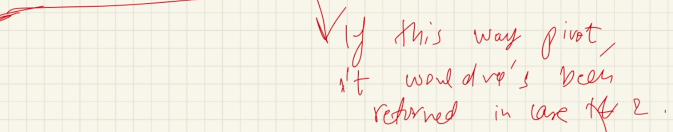 If this way pivot,
it would've's been
returned in case # 2.